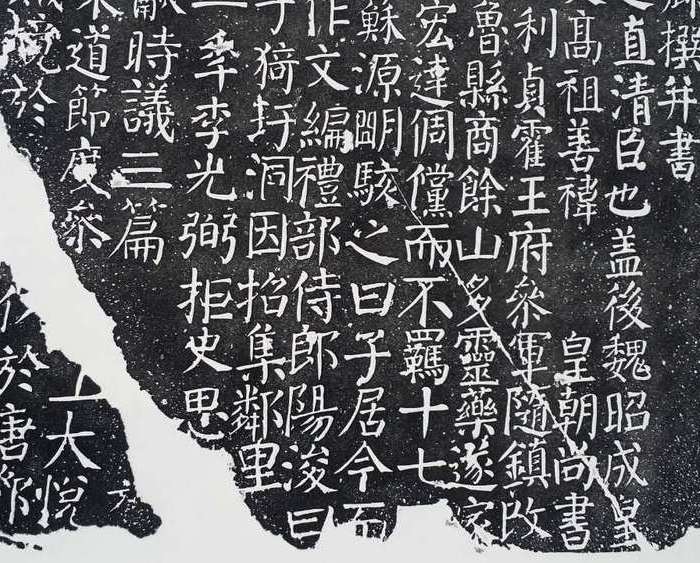 撰并書
直清臣也蓋後魏昭成皇
高祖善禕皇朝尚書
利貞霍王府參軍隨鎮改
魯縣商餘山多靈藥遂家
宏達倜儻而不羈十七
蘇源明駭之曰子居今而
作文編禮部侍郎陽浚曰
于猗玗洞因招集鄰里
二年李光弼拒史思
獻時議三篇
道節度參
境於
上大悅
於唐